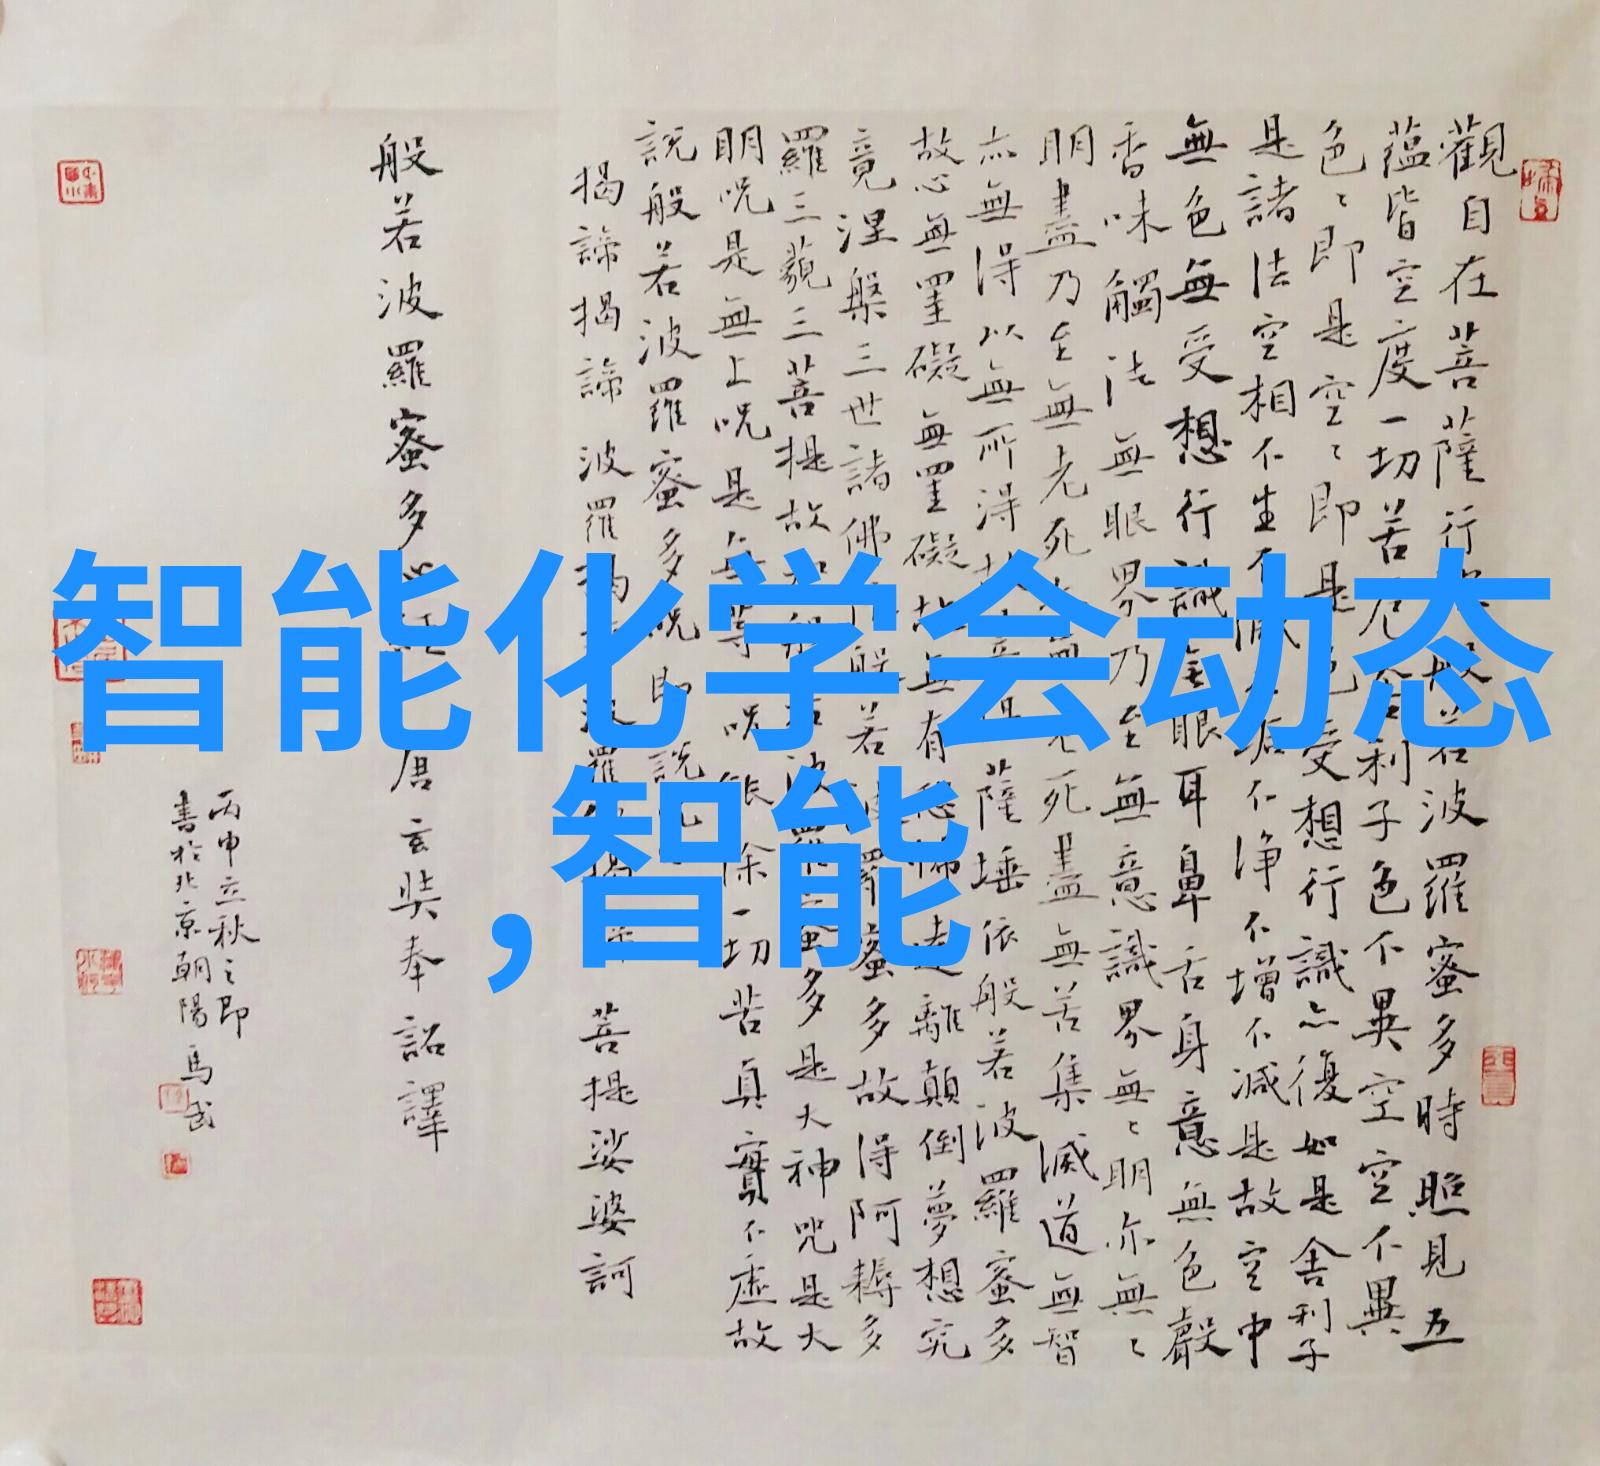 智能化学会动态
,智能
觀自在菩薩行般若波羅蜜多時照見五
蘊皆空度一切苦厄舍利子色不異空空不異
色〻即是空〻即是色受想行識亦復如是舍利子
是諸法空相不生不滅不垢不淨不增不減是故空中
無色無受想行識無眼耳鼻舌身意無色聲
香味觸法無眼界乃至無意識界無〻明亦無〻
明盡乃至無老死亦無老死盡無苦集滅道無智
亦無得以無所得故菩提薩埵依般若波羅蜜多
故心無罣礙無罣礙故無有恐怖遠離顛倒夢想究
竟涅槃三世諸佛依般若波羅蜜多故得阿耨多
羅三藐三菩提故知般若波羅蜜多是大神咒是大
明呪是無上呪是無等呪能除一切苦真實不虛故
說般若波羅蜜多呪即說
揭諦揭諦波羅揭諦波羅僧揭諦菩提娑婆訶
般若波羅蜜多心經唐玄奘奉詔譯
丙申立秋之即
書於北京朝陽馬武